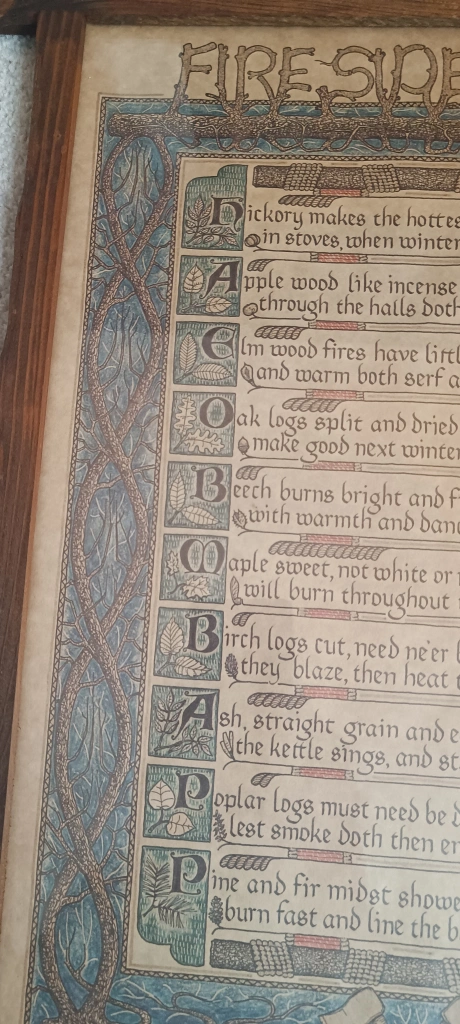 FIRESIDE
Hickory makes the hottes
in stoves, when winter
Apple wood like incense
through the halls doth
Elm wood fires have littl
and warm both serf a
Oak logs split and dried
make good next winter
Beech burns bright and f
with warmth and danc
Maple sweet, not white or
will burn throughout
Birch logs cut, need ne'er
they blaze, then heat t
Ash, straight grain and e
the kettle sings, and st
Poplar logs must need be d
lest smoke doth then en
Pine and fir midst showe
burn fast and line the b